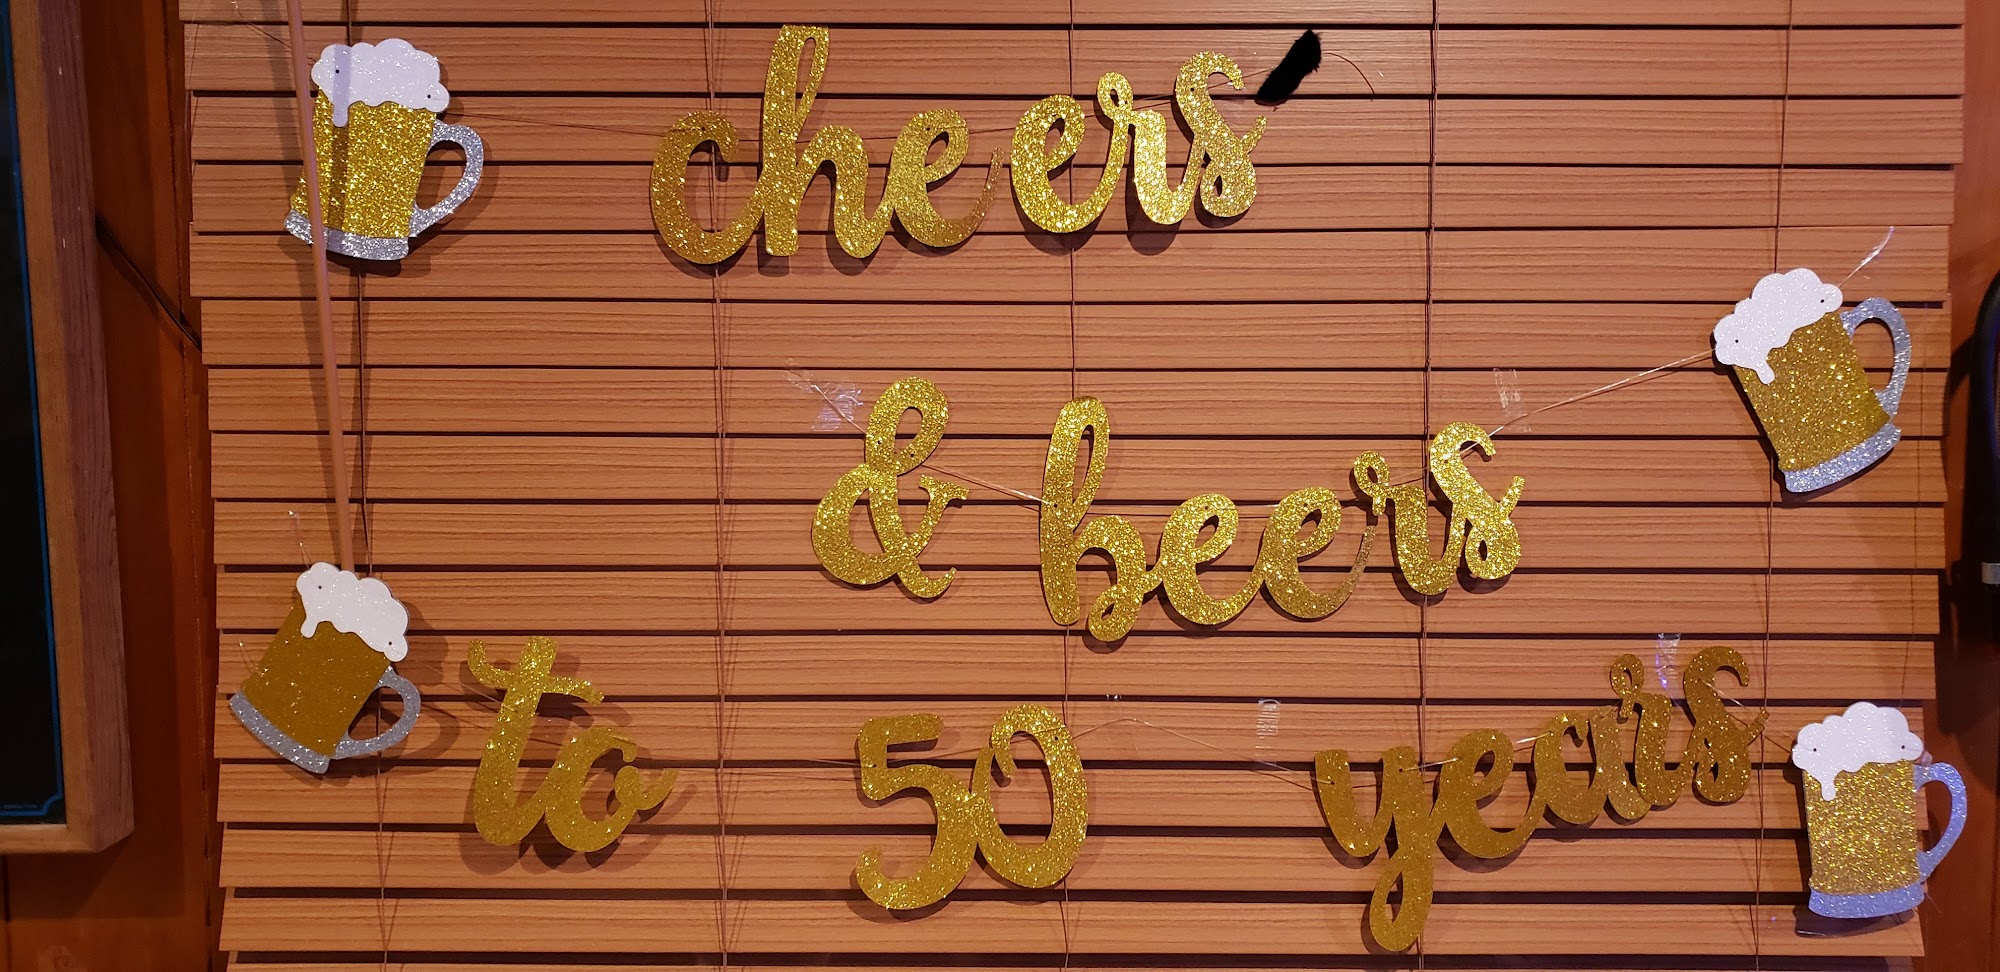 cheers
& beers
to 50 years